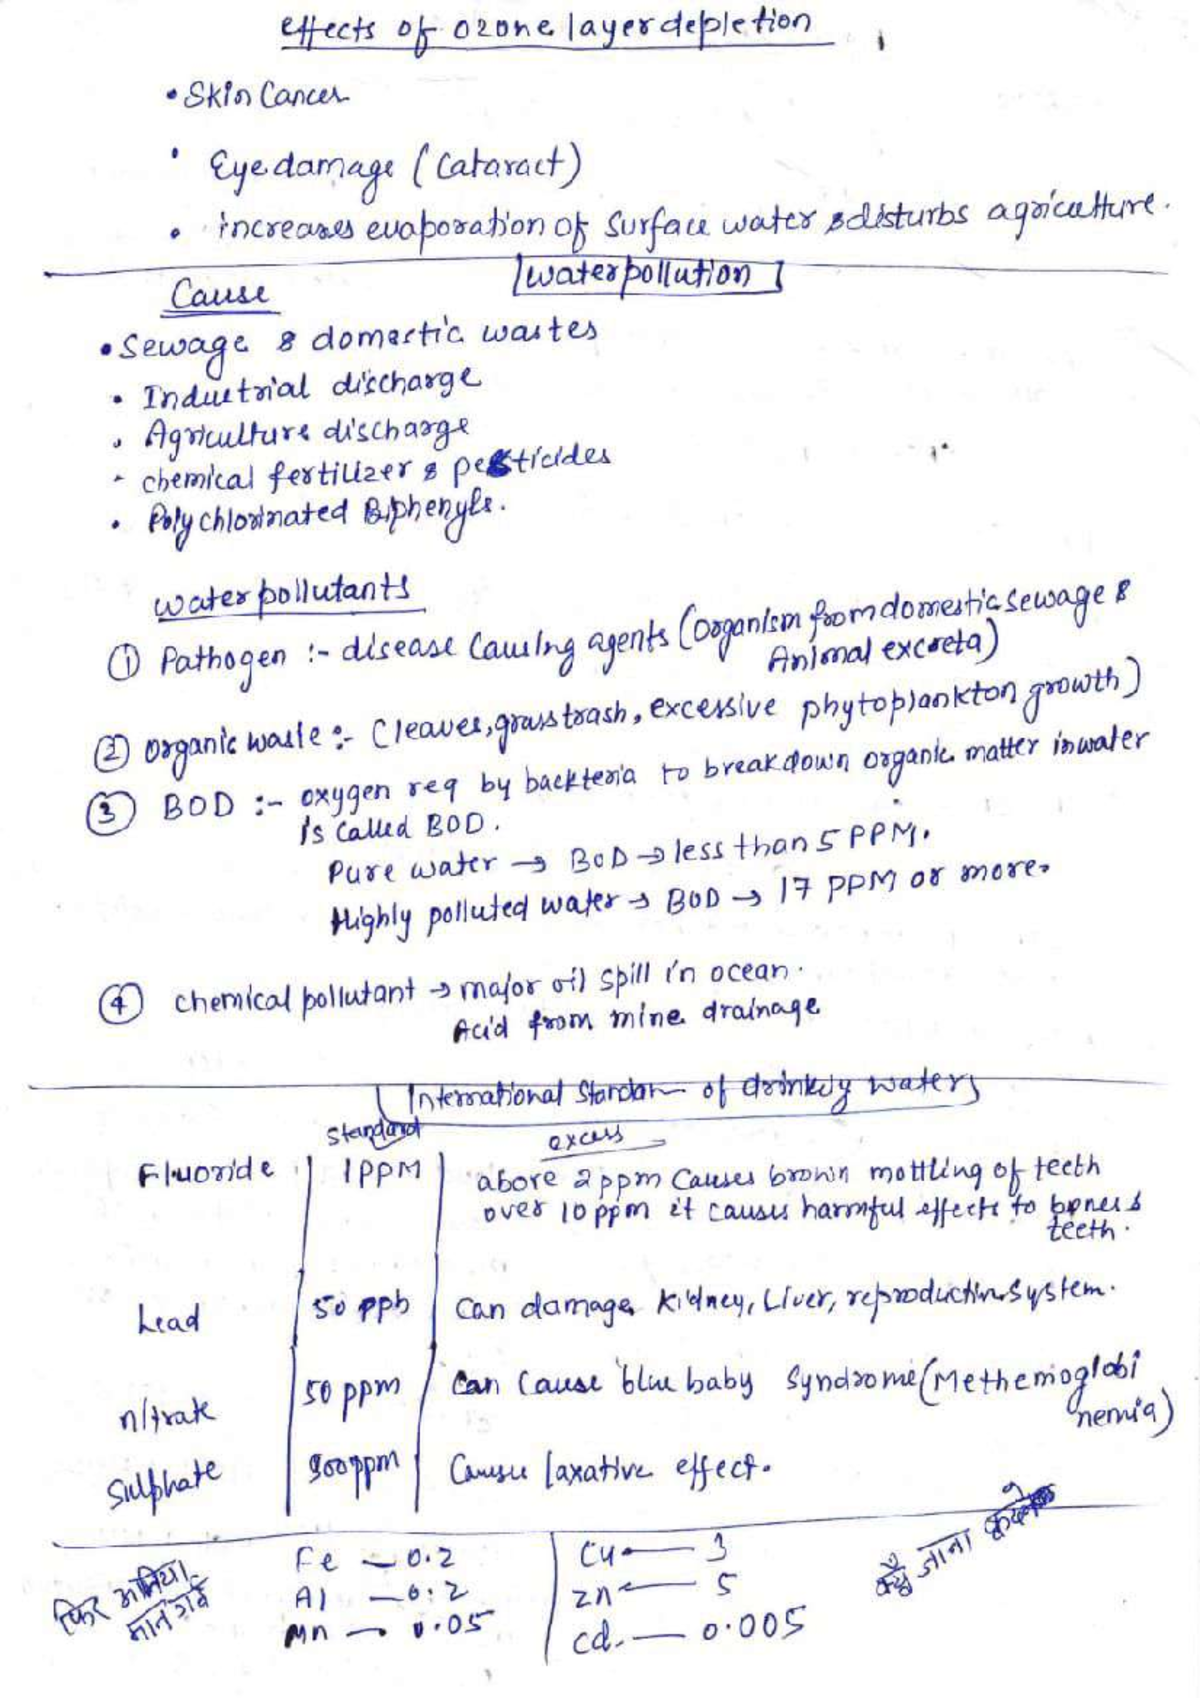 effects of ozone layer depletion
• Skin Cancer
• Eye damage (Cataract)
• increases evaporation of surface water & disturbs agriculture.
water pollution
Cause
• Sewage & domestic wastes
• Industrial discharge
• Agriculture discharge
• chemical fertilizer & pesticides
• Poly chlorinated Biphenyls.
water pollutants
① Pathogen :- disease causing agents (organism from domestic sewage &
Animal excreta)
② organic waste :- (leaves, grass trash, excessive phytoplankton growth)
③ BOD :- oxygen req by backteria to breakdown organic matter in water
is called BOD.
Pure water → BOD → less than 5 PPM.
Highly polluted water → BOD → 17 PPM or more.
④ chemical pollutant → major oil spill in ocean.
Acid from mine drainage
International Standar of drinking water
Standard excess
Fluoride 1 PPM above 2 ppm Causes brown mottling of teeth
over 10 ppm it causes harmful effects to bones &
teeth.
Lead 50 ppb can damage kidney, Liver, reproduction system.
nitrate 50 ppm Can cause 'blue baby syndrome (Methemoglobi
nemia)
Sulphate 500 ppm Cause laxative effect.
Fe — 0.2 Cu — 3
Al — 0.2 Zn — 5
Mn — 0.05 Cd — 0.005
फिर
क्यूँ जाना